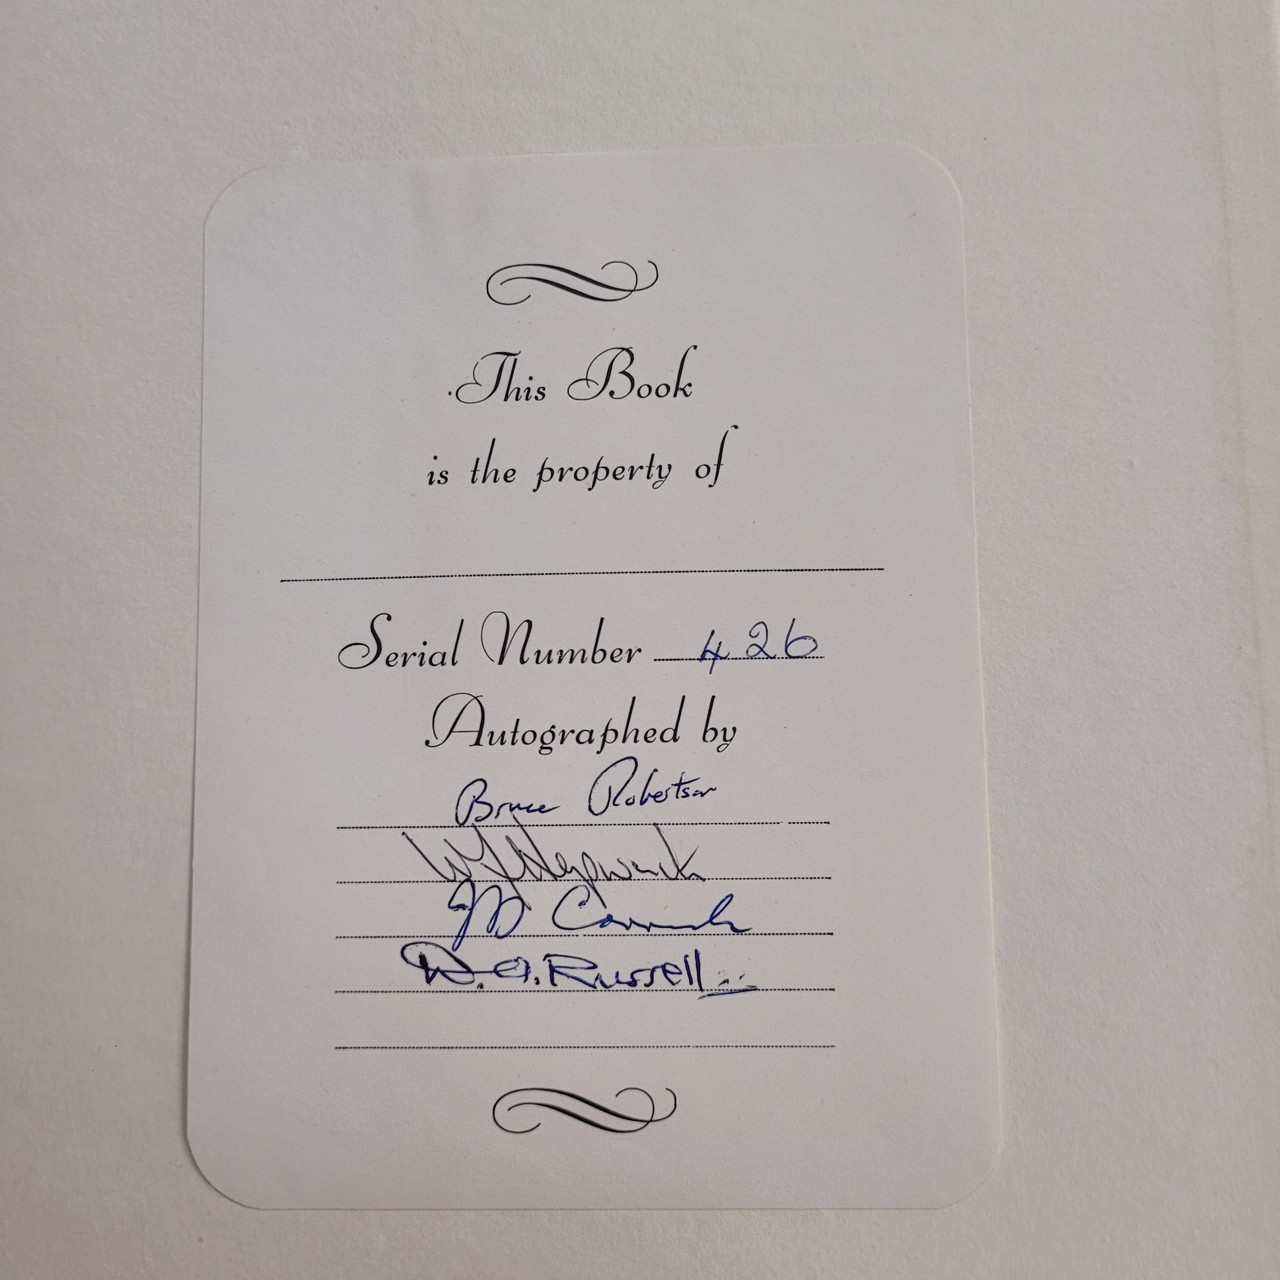 This Book
is the property of
Serial Number 426
Autographed by
Bruce Robertson
W J Hepworth
D. A. Russell